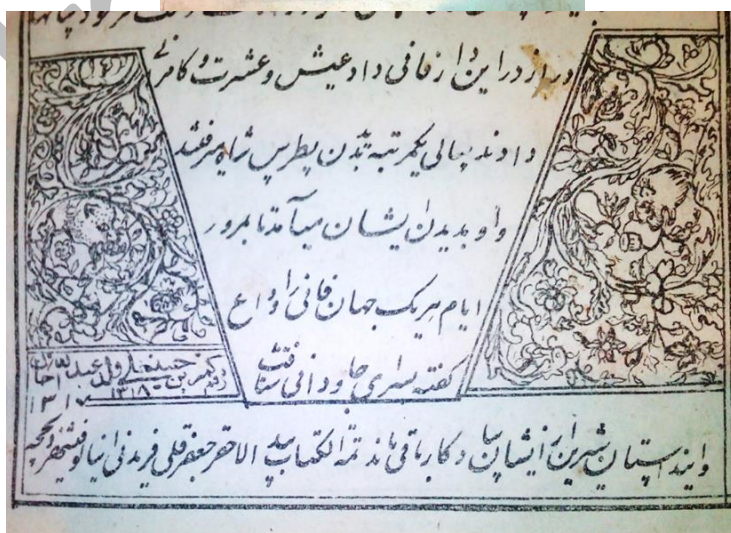 دراز در این دار فانی داد عیش و عشرت و کامرانی
دادند سالی یکمرتبه بدیدن پطرس شاه میرفتند
و او بدیدن ایشان میآمد تا بمرور
ایام هر یک جهان فانی را وداع
گفته بسرای جاودانی شتافت
ولد عبد الله خان
۱۳۱۸
۱۳۱۷
و ایندا ستان شیرین از ایشان بیادگار باقی ماند تمة الکتاب بید الاحقر جعفر قلی فریدنی